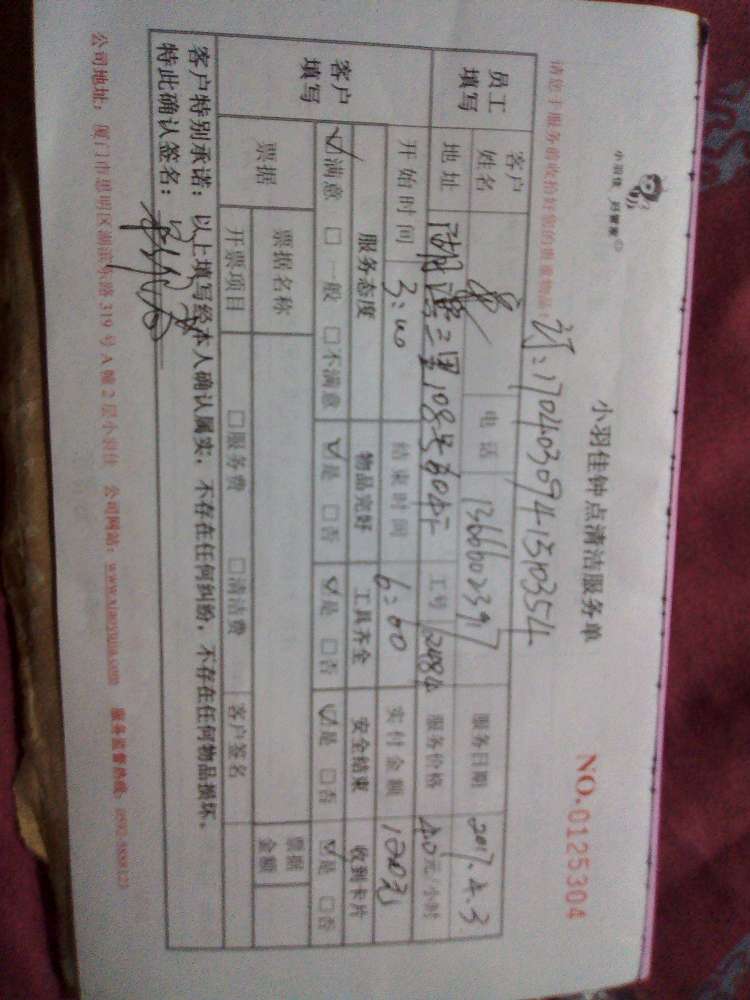 小羽佳 好管家
小羽佳钟点清洁服务单
NO.0125304
请您于服务前收拾好您的贵重物品!
订:170403094151035
员工填写 客户姓名 电话 服务日期 2017.4.3
地址 湖滨二里108号 工号 服务价格 40元/小时
开始时间 3:00 结束时间 6:00 实付金额 120元
客户填写 服务态度 物品完好 工具齐全 安全结束 收到卡片
☑满意 □一般 □不满意 ☑是 □否 ☑是 □否 ☑是 □否 ☑是 □否
票据 票据名称 票据金额
开票项目 □服务费 □清洁费 客户签名
客户特别承诺:以上填写经本人确认属实,不存在任何纠纷,不存在任何物品损坏,
特此确认签名:
公司地址:厦门市思明区湖滨东路319号A幢2层小羽佳 公司网站:www.xiaoyujia.com 服务监督热线: